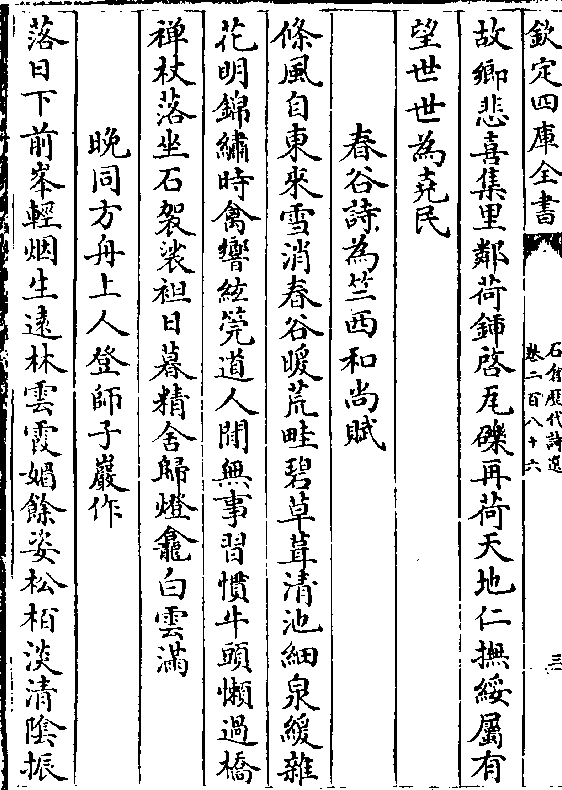 欽定四庫全書
石倉歷代詩選
卷二百八十六
三
故鄉悲喜集里鄰荷鍤啓瓦礫再荷天地仁撫綏屬有
望世世為堯民
春谷詩為竺西和尚賦
條風自東來雪消春谷暖荒畦碧草葺清池細泉緩雜
花明錦繡時禽響絃筦道人閒無事習慣牛頭懶過橋
禪杖落坐石袈裟袒日暮精舍歸燈龕白雲滿
晚同方舟上人登師子巖作
落日下前峯輕烟生遠林雲霞媚餘姿松栢淡清陰振